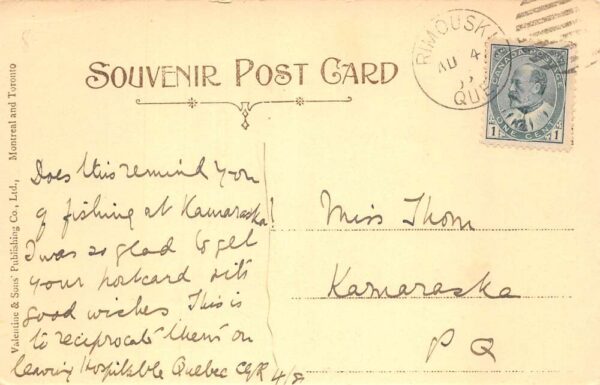 SOUVENIR POST CARD
RIMOUSKI
AU 4
QUE
CANADA POSTAGE
ONE CENT
1 1
Valentine & Sons' Publishing Co., Ltd., Montreal and Toronto
Does this remind you
of fishing at Kamaraska!
I was so glad to get
your postcard with
good wishes This is
to reciprocate them on
leaving Hospitable Quebec 4/8
Miss Thom
Kamaraska
P Q